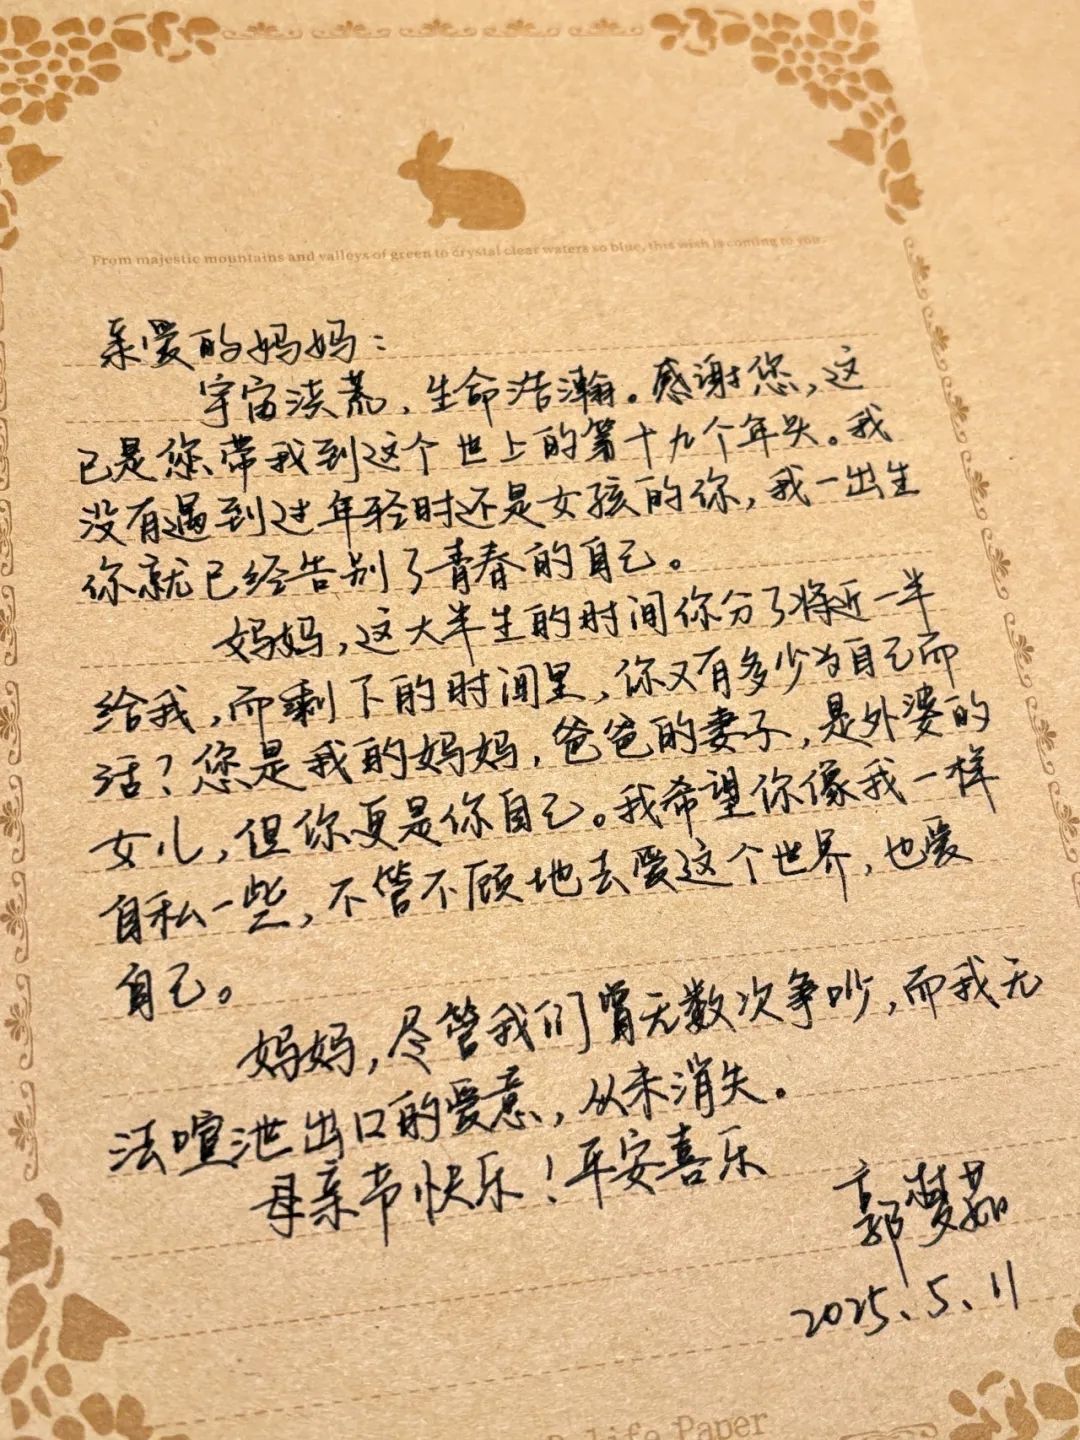 From majestic mountains and valleys of green to crystal clear waters so blue, this wish is coming to you.
亲爱的妈妈：
宇宙淡荒，生命浩瀚。感谢您，这
已是您带我到这个世上的第十九个年头。我
没有遇到过年轻时还是女孩的你，我一出生
你就已经告别了青春的自己。
妈妈，这大半生的时间你分了将近一半
给我，而剩下的时间里，你又有多少为自己而
活？您是我的妈妈，爸爸的妻子，是外婆的
女儿，但你更是你自己。我希望你像我一样
自私一些，不管不顾地去爱这个世界，也爱
自己。
妈妈，尽管我们曾无数次争吵，而我无
法喧泄出口的爱意，从未消失。
母亲节快乐！平安喜乐
郭梦茹
2025、5、11
life Paper